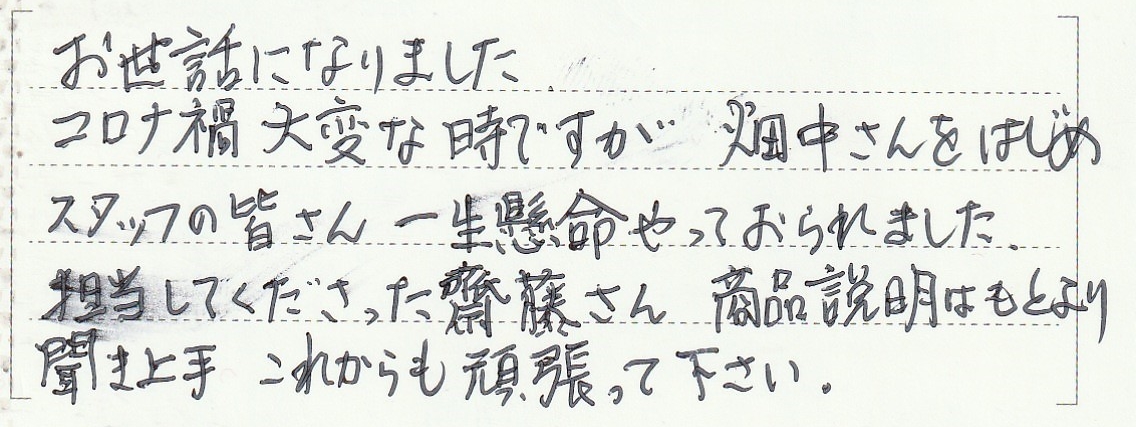 お世話になりました
コロナ禍 大変な時ですが 畑中さんをはじめ
スタッフの皆さん 一生懸命やっておられました.
担当してくださった齋藤さん 商品説明はもとより
聞き上手 これからも頑張って下さい.